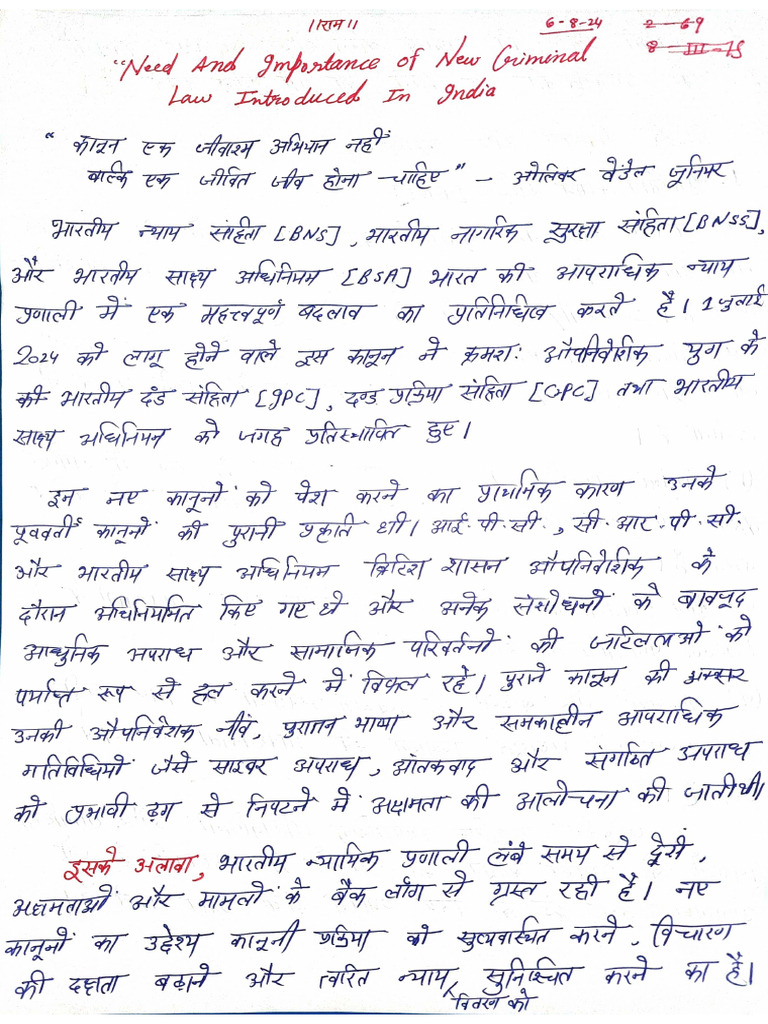 ॥राम॥
6-8-24
2-69
8-III-15
"Need And Importance of New Criminal
Law Introduced In India
"कानून एक जीवाश्म अभियान नहीं
बल्कि एक जीवित जीव होना चाहिए" - ओलिवर वेंडेल जूनियर
भारतीय न्याय संहिता [BNS], भारतीय नागरिक सुरक्षा संहिता [BNSS],
और भारतीय साक्ष्य अधिनियम [BSA] भारत की आपराधिक न्याय
प्रणाली में एक महत्त्वपूर्ण बदलाव का प्रतिनिधित्व करते है। 1 जुलाई
2024 को लागू होने वाले इस कानून ने क्रमश: औपनिवेशिक युग के
की भारतीय दंड संहिता [IPC], दण्ड प्रक्रिया संहिता [CPC] तथा भारतीय
साक्ष्य अधिनियम को जगह प्रतिस्थापित हुए।
इन नए कानूनों को पेश करने का प्राथमिक कारण उनके
पूर्ववर्ती कानूनों की पुरानी प्रकृति थी। आई. पी. सी., सी. आर. पी. सी.
और भारतीय साक्ष्य अधिनियम ब्रिटिश शासन औपनिवेशिक के
दौरान अधिनियमित किए गए थे और अनेक संशोधनों के बावजूद
आधुनिक अपराध और सामाजिक परिवर्तनों की जटिलताओं को
पर्याप्त रूप से हल करने में विफल रहे। पुराने कानून की अक्सर
उनकी औपनिवेशक नींव, पुरातन भाषा और समकालीन आपराधिक
गतिविधियों जैसे साइबर अपराध, आंतकवाद और संगठित अपराध
को प्रभावी ढ़ग से निपटने में अक्षमता की आलोचना की जाती थी।
इसके अलावा, भारतीय न्यायिक प्रणाली लंबे समय से देरी,
अक्षमताओं और मामलों के बैक लॉग से ग्रस्त रही है। नए
कानूनों का उद्देश्य कानूनी प्रक्रिया को सुव्यवस्थित करने, विचारण
की दक्षता बढ़ाने और त्वरित न्याय सुनिश्चित करने का है।
वितरण को